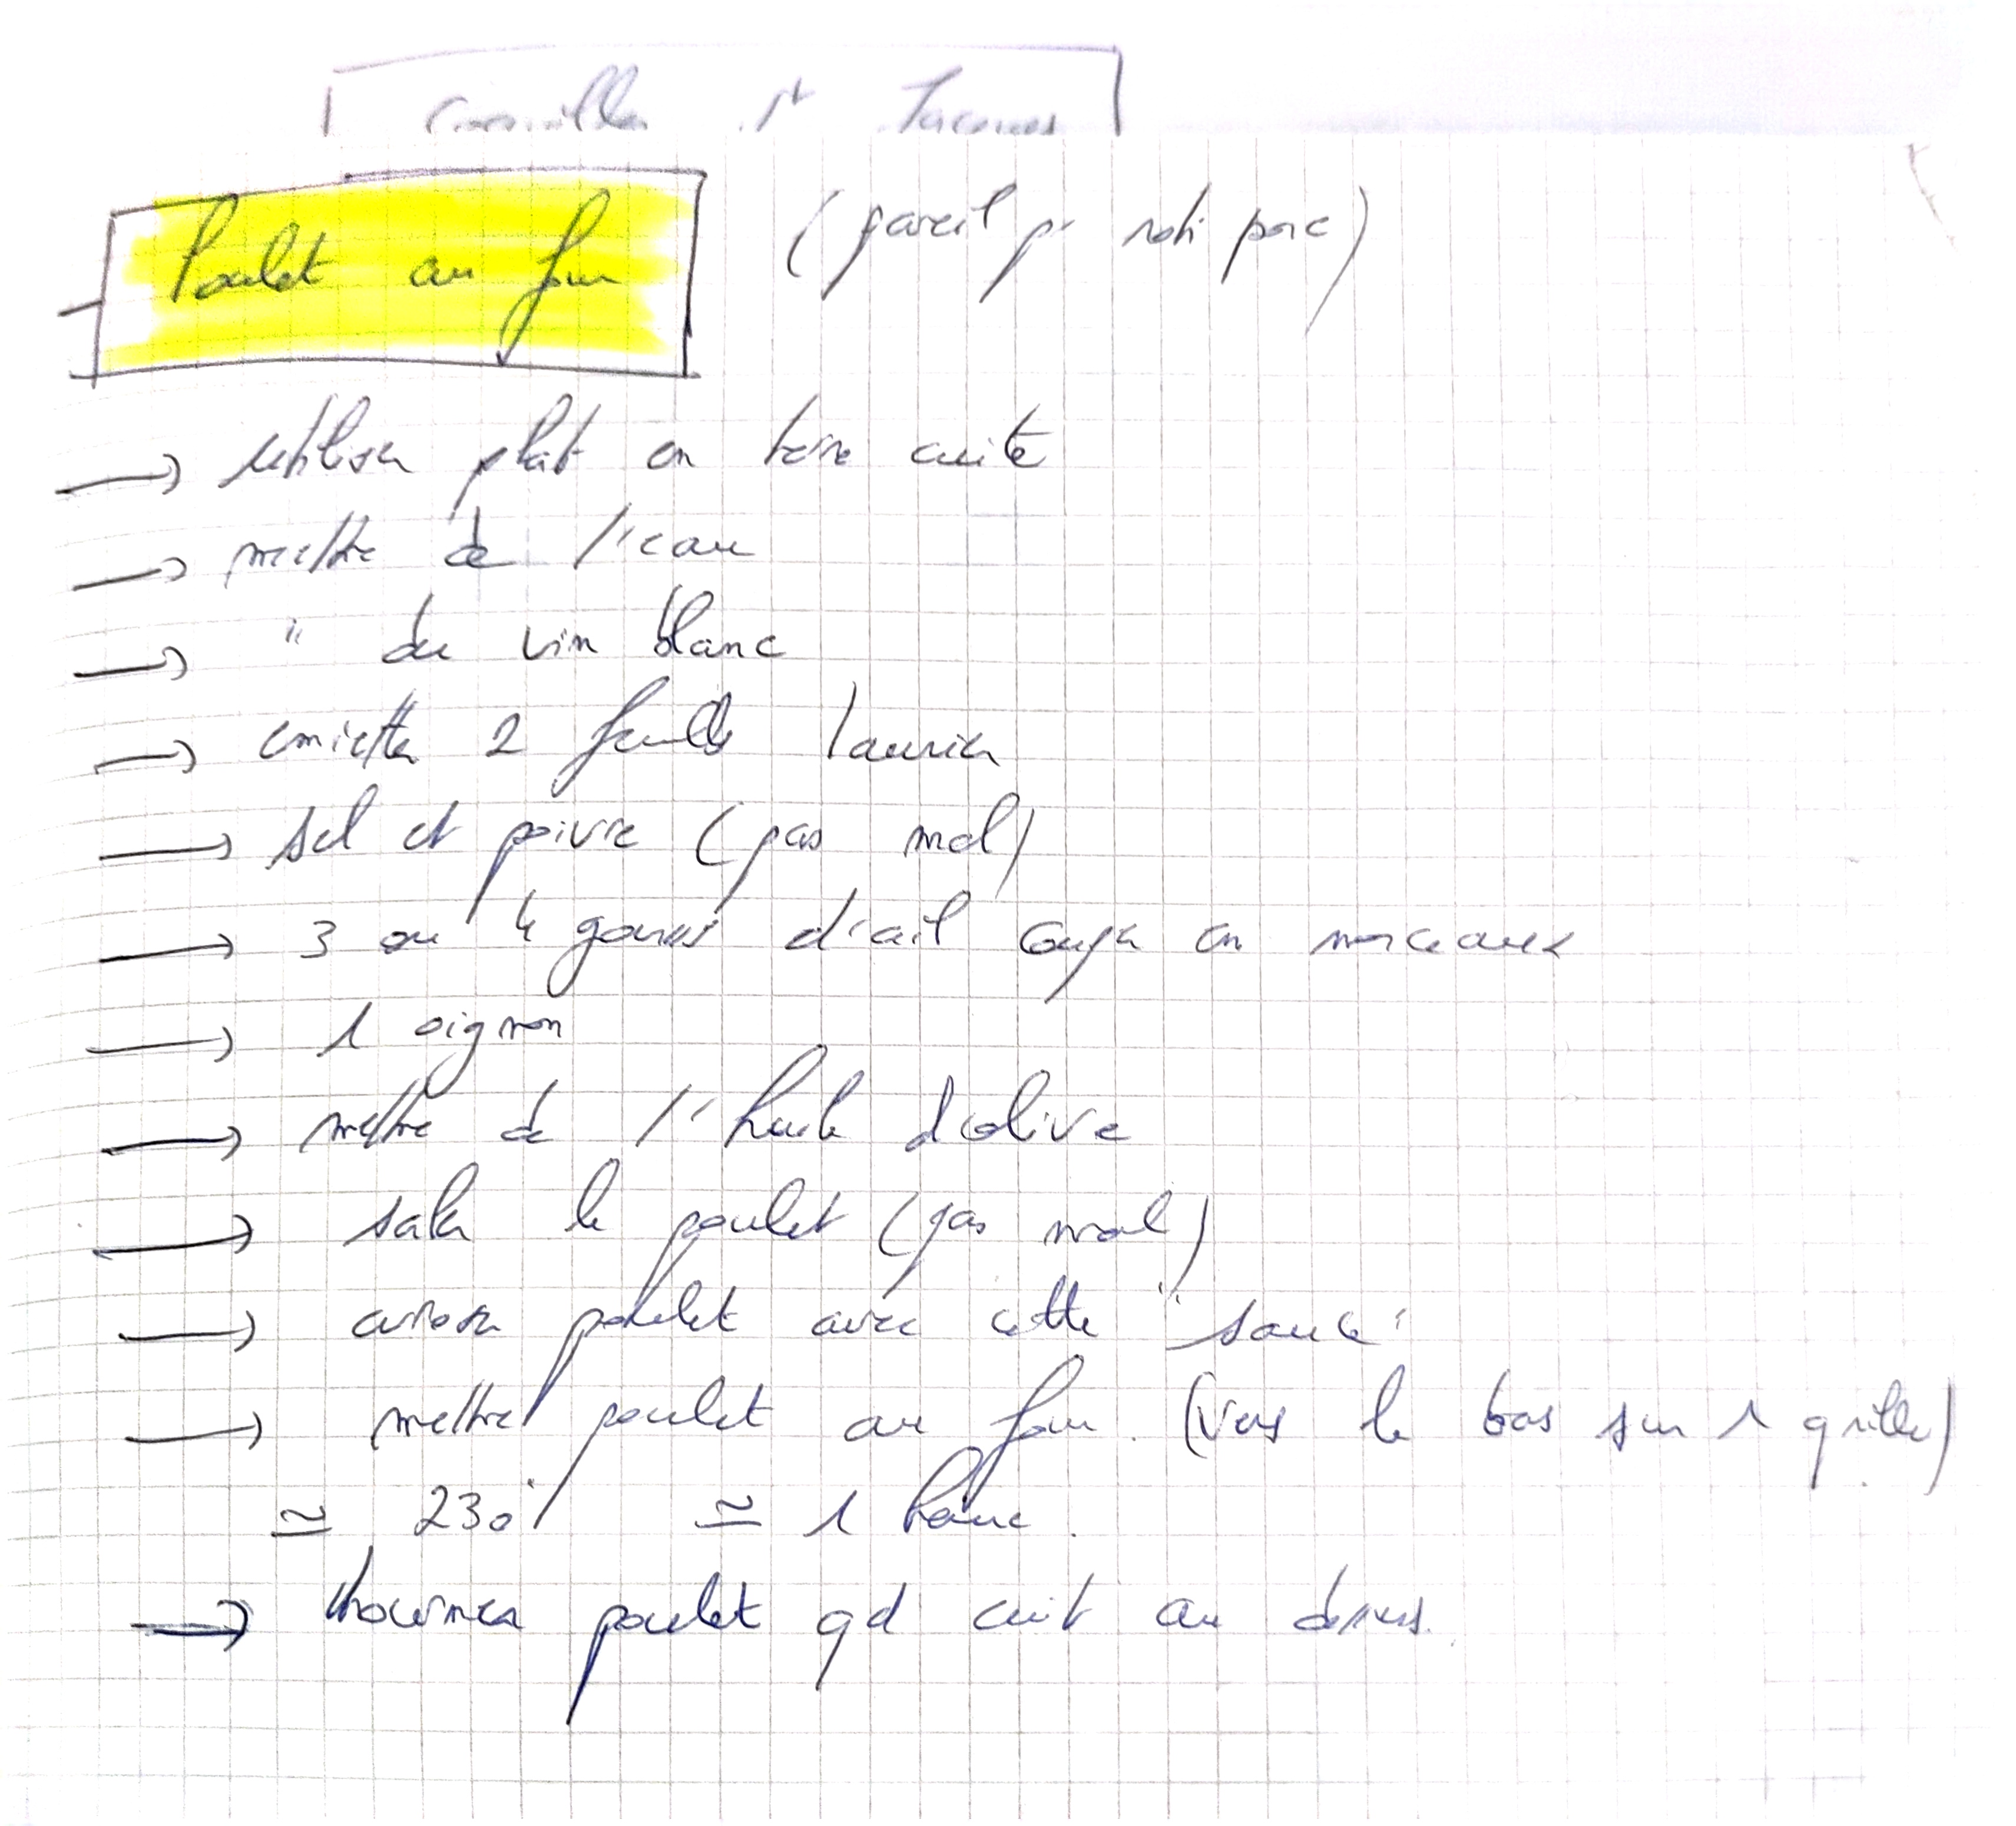 Coquilles St Jacques
Poulet au four (pareil pr roti porc)
→ utiliser plat en terre cuite
→ mettre de l'eau
→ " du vin blanc
→ emietter 2 feuilles laurier
→ sel et poivre (pas mal)
→ 3 ou 4 gousses d'ail couper en morceaux
→ 1 oignon
→ mettre de l'huile d'olive
→ saler le poulet (pas mal)
→ arroser poulet avec cette "sauce"
→ mettre poulet au four. (vers le bas sur 1 grille)
≃ 230° ≃ 1 heure.
→ tourner poulet qd cuit au dessus.